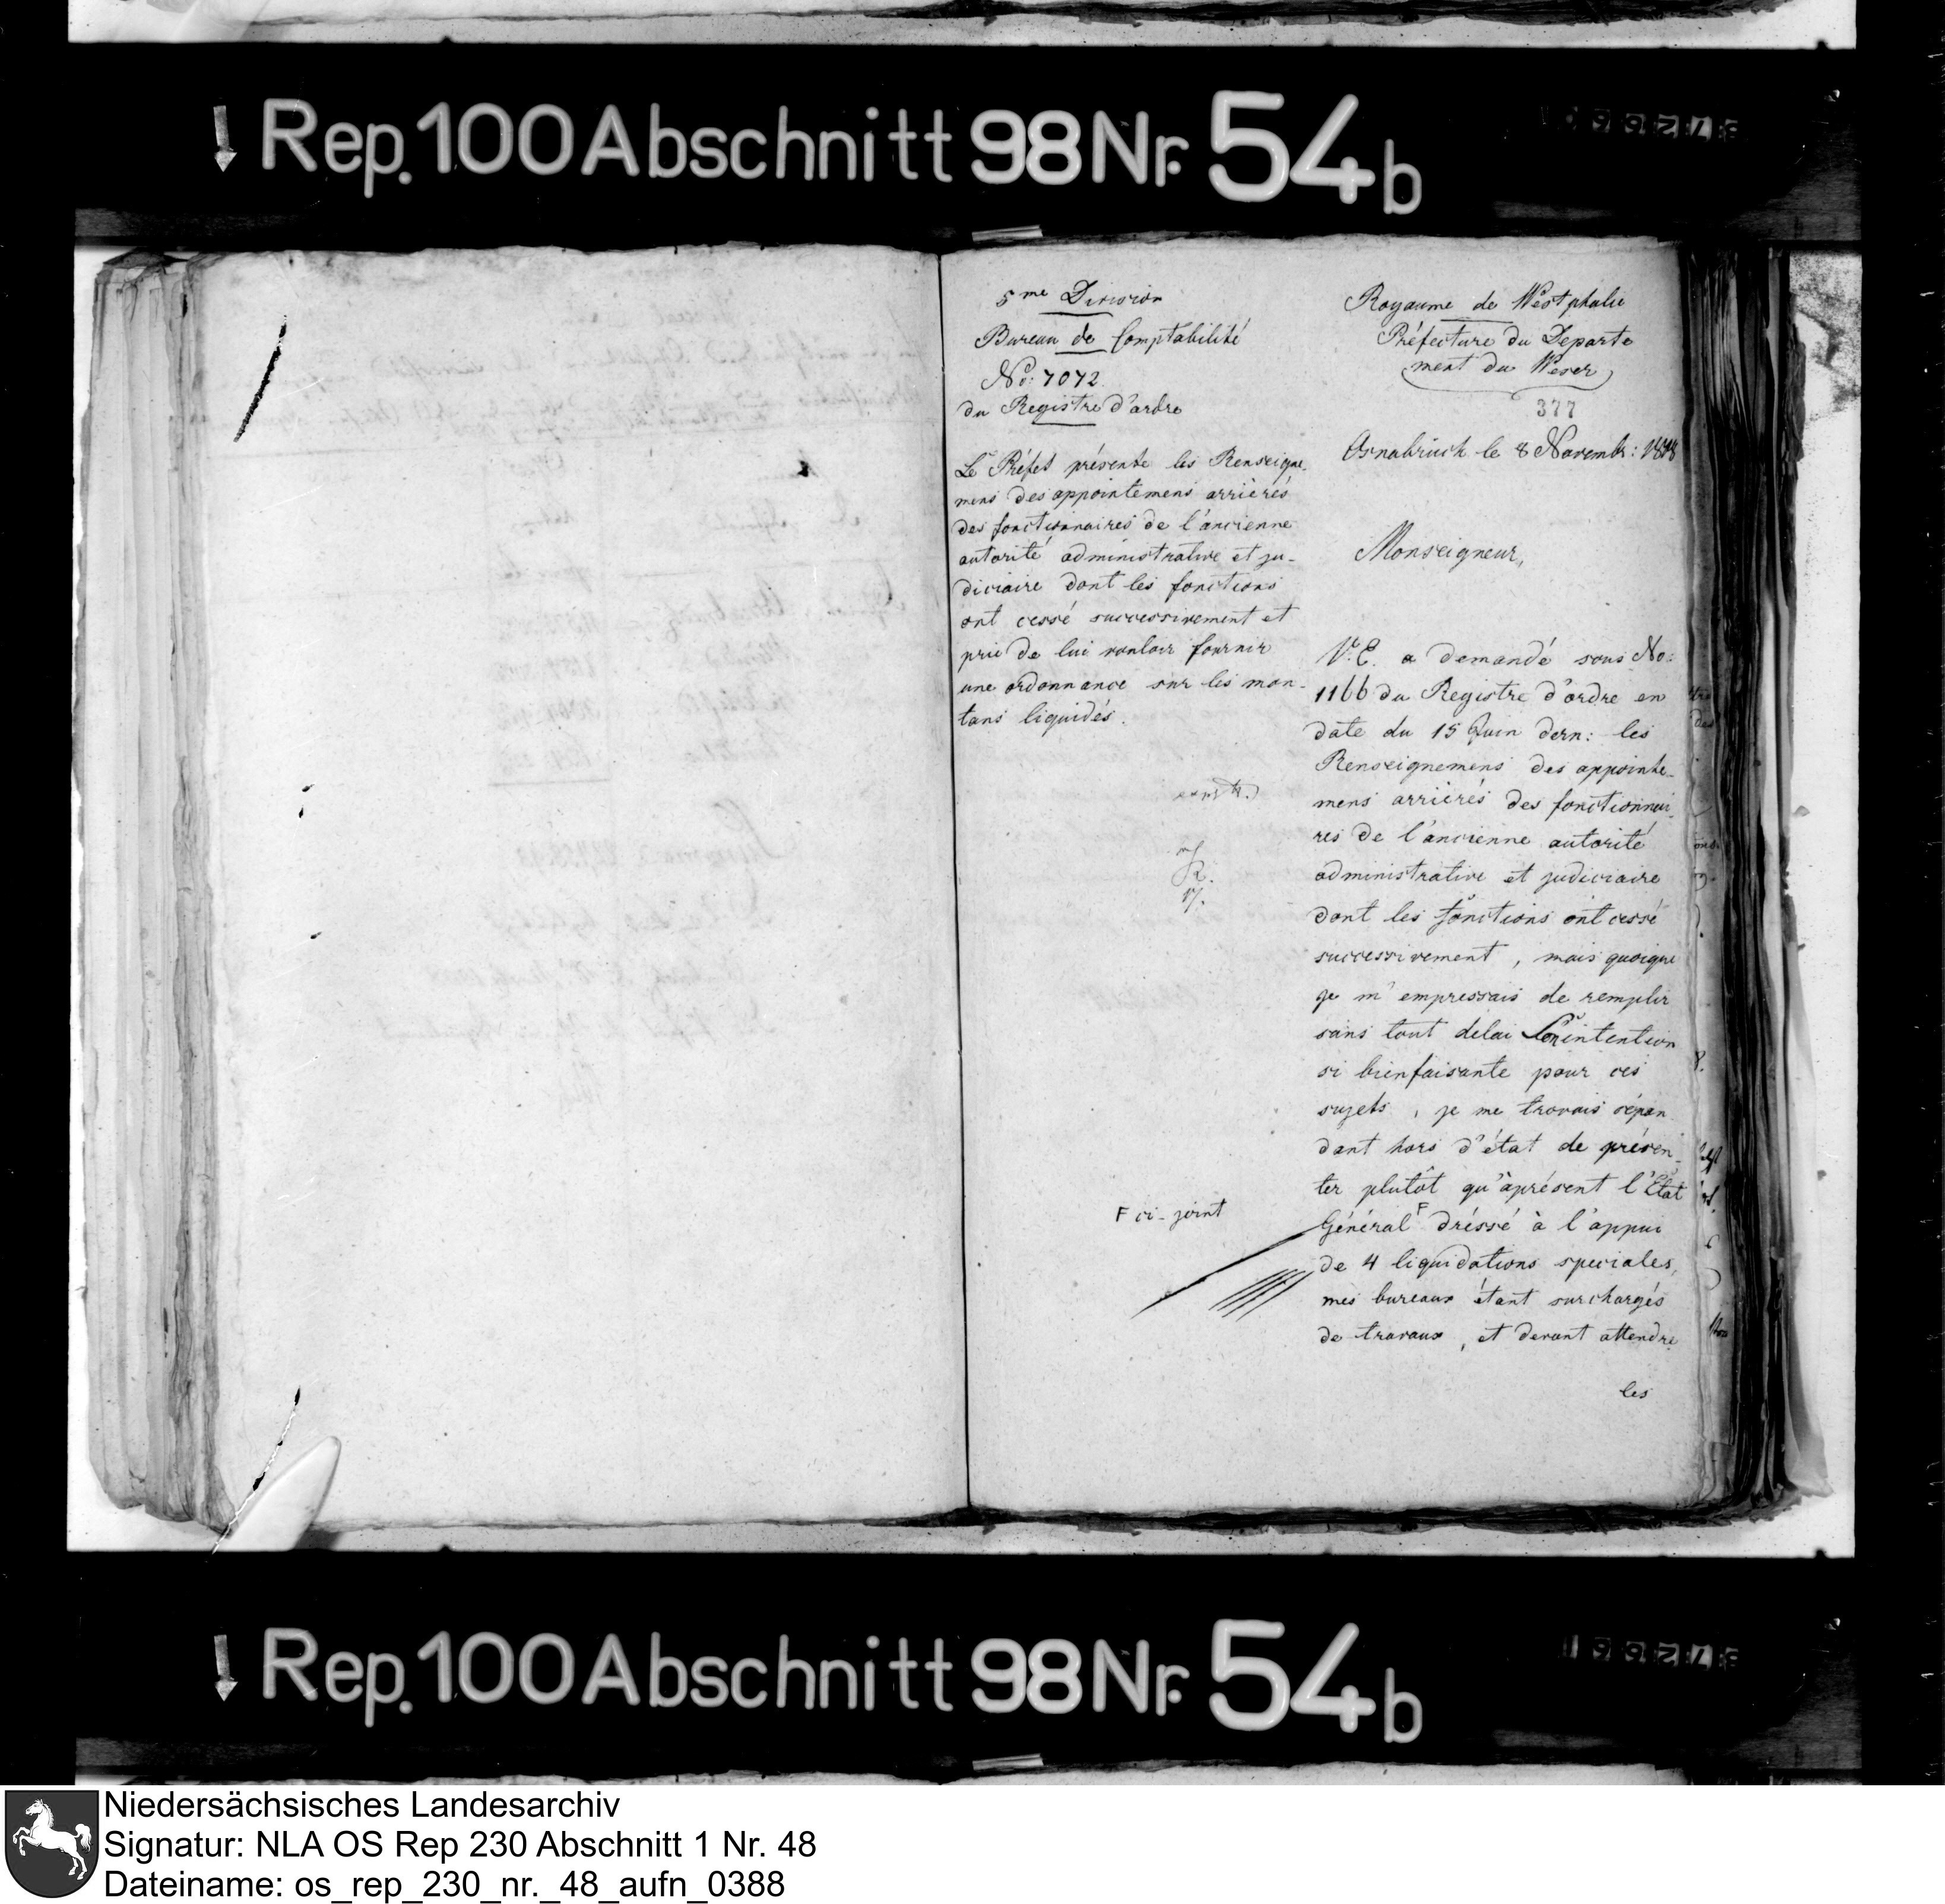 Rep. 100 Abschnitt 98 Nr. 54b
5me Division
Bureau de Comptabilité
No: 7072.
du Registre d'ordre
Le Préfet présente les Renseigne-
mens des appointemens arrièrés
des fonctionnaires de l'ancienne
autorité administrative et ju-
diciaire dont les fonctions
ont cessé successivement et
prie de lui vouloir fournir
une ordonnance sur les mon-
tans liquidés.
F ci-joint
Royaume de Westphalie
Préfecture du Departe
ment du Weser
377
Osnabrück le 8 Novembr: 1808
Monseigneur,
V. E. a demandé sous No:
1166 du Registre d'ordre en
date du 15 Juin dern: les
Renseignemens des appointe-
mens arrièrés des fonctionnai-
res de l'ancienne autorité
administrative et judiciaire
dont les fonctions ont cessé
successivement, mais quoique
je m'empressais de remplir
sans tout delai Son intention
si bienfaisante pour ces
sujets, je me trovais cépen
dant hors d'état de présen-
ter plutôt qu'àprésent l'Etat
Général F dréssé à l'appui
de 4 liquidations speciales,
mes bureaux étant surchargés
de travaux, et devant attendre
les
Rep. 100 Abschnitt 98 Nr. 54b
Niedersächsisches Landesarchiv
Signatur: NLA OS Rep 230 Abschnitt 1 Nr. 48
Dateiname: os_rep_230_nr._48_aufn_0388